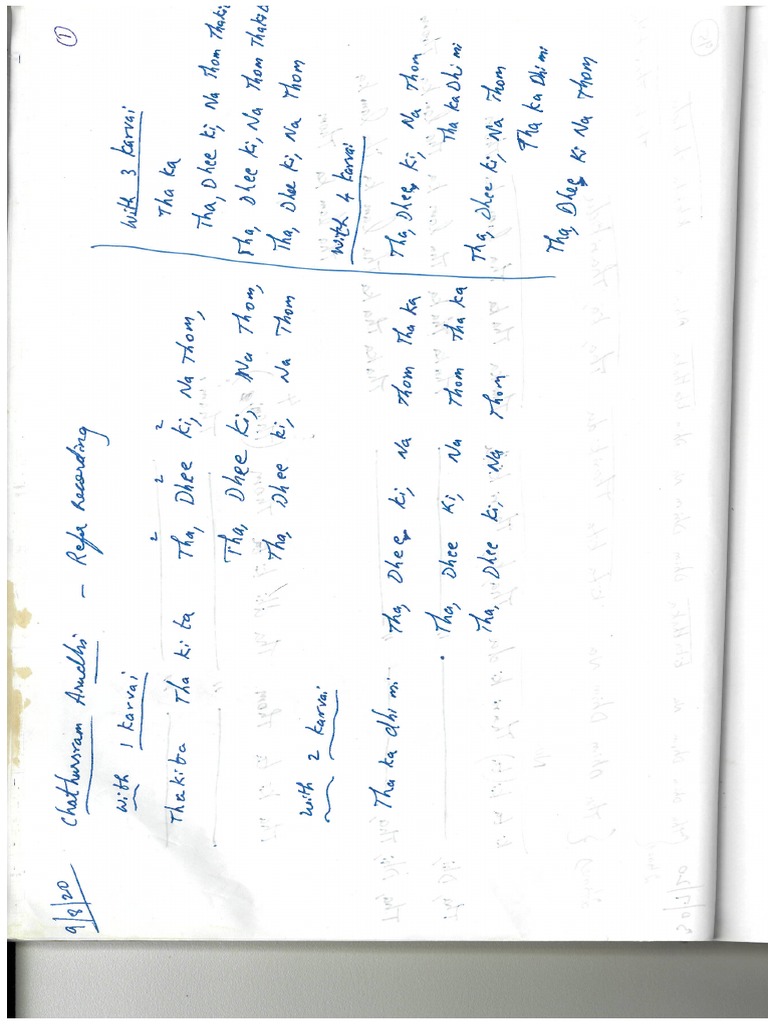 9/8/20
Chathursram Arudhi - Refer Recording
with 1 karvai
2 2 2
Thakita Tha ki ta Tha, Dhee ki, Na Thom,
Tha, Dhee ki, Na Thom,
Tha, Dhee ki, Na Thom
with 2 karvai
Tha ka dhi mi Tha, Dhee ki, Na Thom Tha ka
Tha, Dhee Ki, Na Thom Tha ka
Tha, Dhee Ki, Na Thom
1
with 3 karvai
Tha ka
Tha, Dhee ki, Na Thom
Tha, Dhee ki, Na Thom
Tha, Dhee ki, Na Thom
with 4 karvai
Tha, Dhee, Ki, Na Thom
Tha ka Dhi mi
Tha, Dhee ki, Na Thom
Tha ka Dhi mi
Tha, Dhee, Ki Na Thom